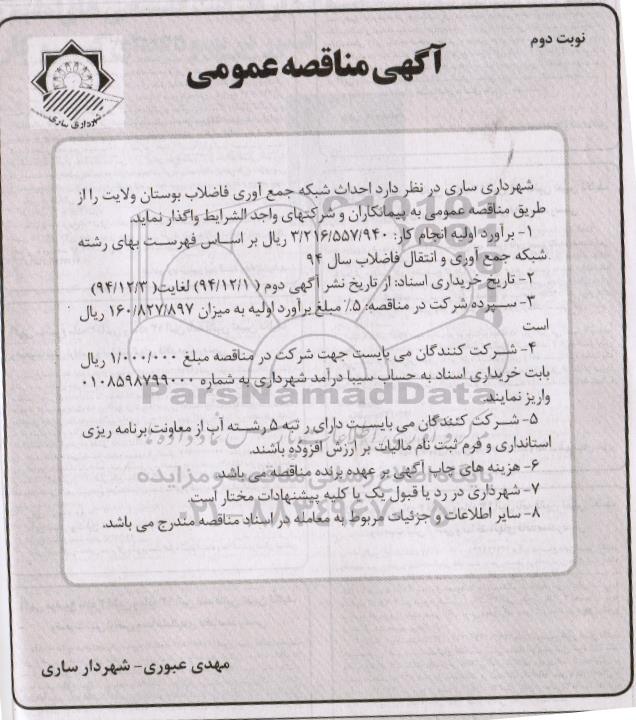 نوبت دوم
آگهی مناقصه عمومی
شهرداری ساری
شهرداری ساری در نظر دارد احداث شبکه جمع آوری فاضلاب بوستان ولایت را از
طریق مناقصه عمومی به پیمانکاران و شرکتهای واجد الشرایط واگذار نماید.
۱- برآورد اولیه انجام کار: ۳/۲۱۶/۵۵۷/۹۴۰ ریال بر اساس فهرست بهای رشته
شبکه جمع آوری و انتقال فاضلاب سال ۹۴
۲- تاریخ خریداری اسناد: از تاریخ نشر آگهی دوم (۹۴/۱۲/۱) لغایت(۹۴/۱۲/۳)
۳- سپرده شرکت در مناقصه: ۵٪ مبلغ برآورد اولیه به میزان ۱۶۰/۸۲۷/۸۹۷ ریال
است
۴- شرکت کنندگان می بایست جهت شرکت در مناقصه مبلغ ۱/۰۰۰/۰۰۰ ریال
بابت خریداری اسناد به حساب سیبا درآمد شهرداری به شماره ۰۱۰۸۵۹۸۷۹۹۰۰۰
واریز نمایند.
۵- شرکت کنندگان می بایست دارای رتبه ۵ رشته آب از معاونت برنامه ریزی
استانداری و فرم ثبت نام مالیات بر ارزش افزوده باشند.
۶- هزینه های چاپ آگهی بر عهده برنده مناقصه می باشد.
۷- شهرداری در رد یا قبول یک یا کلیه پیشنهادات مختار است.
۸- سایر اطلاعات و جزئیات مربوط به معامله در اسناد مناقصه مندرج می باشد.
ParsNamadData
پایگاه اطلاع رسانی مناقصه و مزایده
مهدی عبوری- شهردار ساری